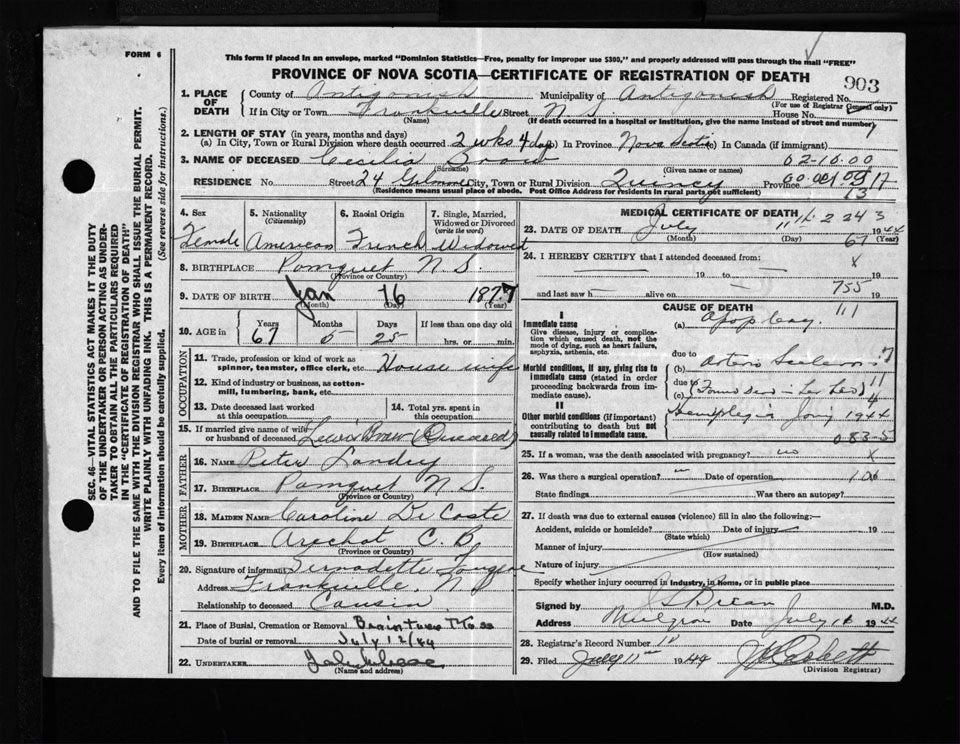 FORM 6
This form if placed in an envelope, marked "Dominion Statistics—Free, penalty for improper use $300," and properly addressed will pass through the mail "FREE"
PROVINCE OF NOVA SCOTIA—CERTIFICATE OF REGISTRATION OF DEATH
903
SEC. 46—VITAL STATISTICS ACT MAKES IT THE DUTY
OF THE UNDERTAKER OR PERSON ACTING AS UNDER-
TAKER TO OBTAIN ALL THE PARTICULARS REQUIRED
IN THE "CERTIFICATE OF REGISTRATION OF DEATH"
AND TO FILE THE SAME WITH THE DIVISION REGISTRAR WHO SHALL ISSUE THE BURIAL PERMIT.
WRITE PLAINLY WITH UNFADING INK. THIS IS A PERMANENT RECORD.
Every item of information should be carefully supplied. (See reverse side for instructions.)
1. PLACE OF DEATH
County of Antigonish Municipality of Antigonish Registered No.
(For use of Registrar General only)
If in City or Town Frankville Street N S House No.
(Name) (If death occurred in a hospital or institution, give the name instead of street and number)
2. LENGTH OF STAY (in years, months and days)
(a) In City, Town or Rural Division where death occurred 2 wks 4 days In Province Nova Scotia In Canada (if immigrant)
3. NAME OF DECEASED Cecilia
(Surname) (Given name or names)
02-10.00
RESIDENCE No. Street 24 City, Town or Rural Division Quincy Province
(Residence means usual place of abode. Post Office Address for residents in rural parts not sufficient)
4. Sex
Female
5. Nationality
(Citizenship)
American
6. Racial Origin
French
7. Single, Married, Widowed or Divorced
(write the word)
Widowed
8. BIRTHPLACE Pomquet N. S.
(Province or Country)
9. DATE OF BIRTH Jan 16 1877
(Month) (Day) (Year)
10. AGE in
Years Months Days If less than one day old
67 5 25 hrs. or min.
OCCUPATION
11. Trade, profession or kind of work as
spinner, teamster, office clerk, etc. House wife
12. Kind of industry or business, as cotton-
mill, lumbering, bank, etc.
13. Date deceased last worked
at this occupation
14. Total yrs. spent in
this occupation
15. If married give name of wife
or husband of deceased Lewis (Deceased)
FATHER
16. NAME Peter Landry
17. BIRTHPLACE Pomquet N S.
(Province or Country)
MOTHER
18. MAIDEN NAME Caroline De Coste
19. BIRTHPLACE Arichat C. B
(Province or Country)
20. Signature of informant Bernadette
Address Frankville, N
Relationship to deceased Cousin
21. Place of Burial, Cremation or Removal Braintree Mass
Date of burial or removal July 12/44
22. UNDERTAKER
(Name and address)
MEDICAL CERTIFICATE OF DEATH
23. DATE OF DEATH July 11th 1944
(Month) (Day) (Year)
24. I HEREBY CERTIFY that I attended deceased from:
19 to 19
and last saw h alive on 19
755
CAUSE OF DEATH
I
Immediate cause
Give disease, injury or complica-
tion which caused death, not the
mode of dying, such as heart failure,
asphyxia, asthenia, etc.
(a) Apoplexy
due to
Morbid conditions, if any, giving rise to
immediate cause (stated in order
proceeding backwards from im-
mediate cause).
(b) Arterio Sclerosis
due to
(c) (Found dead in her bed)
II
Other morbid conditions (if important)
contributing to death but not
causally related to immediate cause.
Hemiplegia 1944
083-5
25. If a woman, was the death associated with pregnancy? no
26. Was there a surgical operation? Date of operation 19
State findings Was there an autopsy?
27. If death was due to external causes (violence) fill in also the following:
Accident, suicide or homicide? Date of injury 19
(State which)
Manner of injury
(How sustained)
Nature of injury
Specify whether injury occurred in industry, in home, or in public place
Signed by M.D.
Address Mulgrave Date July 1944
28. Registrar's Record Number
29. Filed July 11th 1944
(Division Registrar)